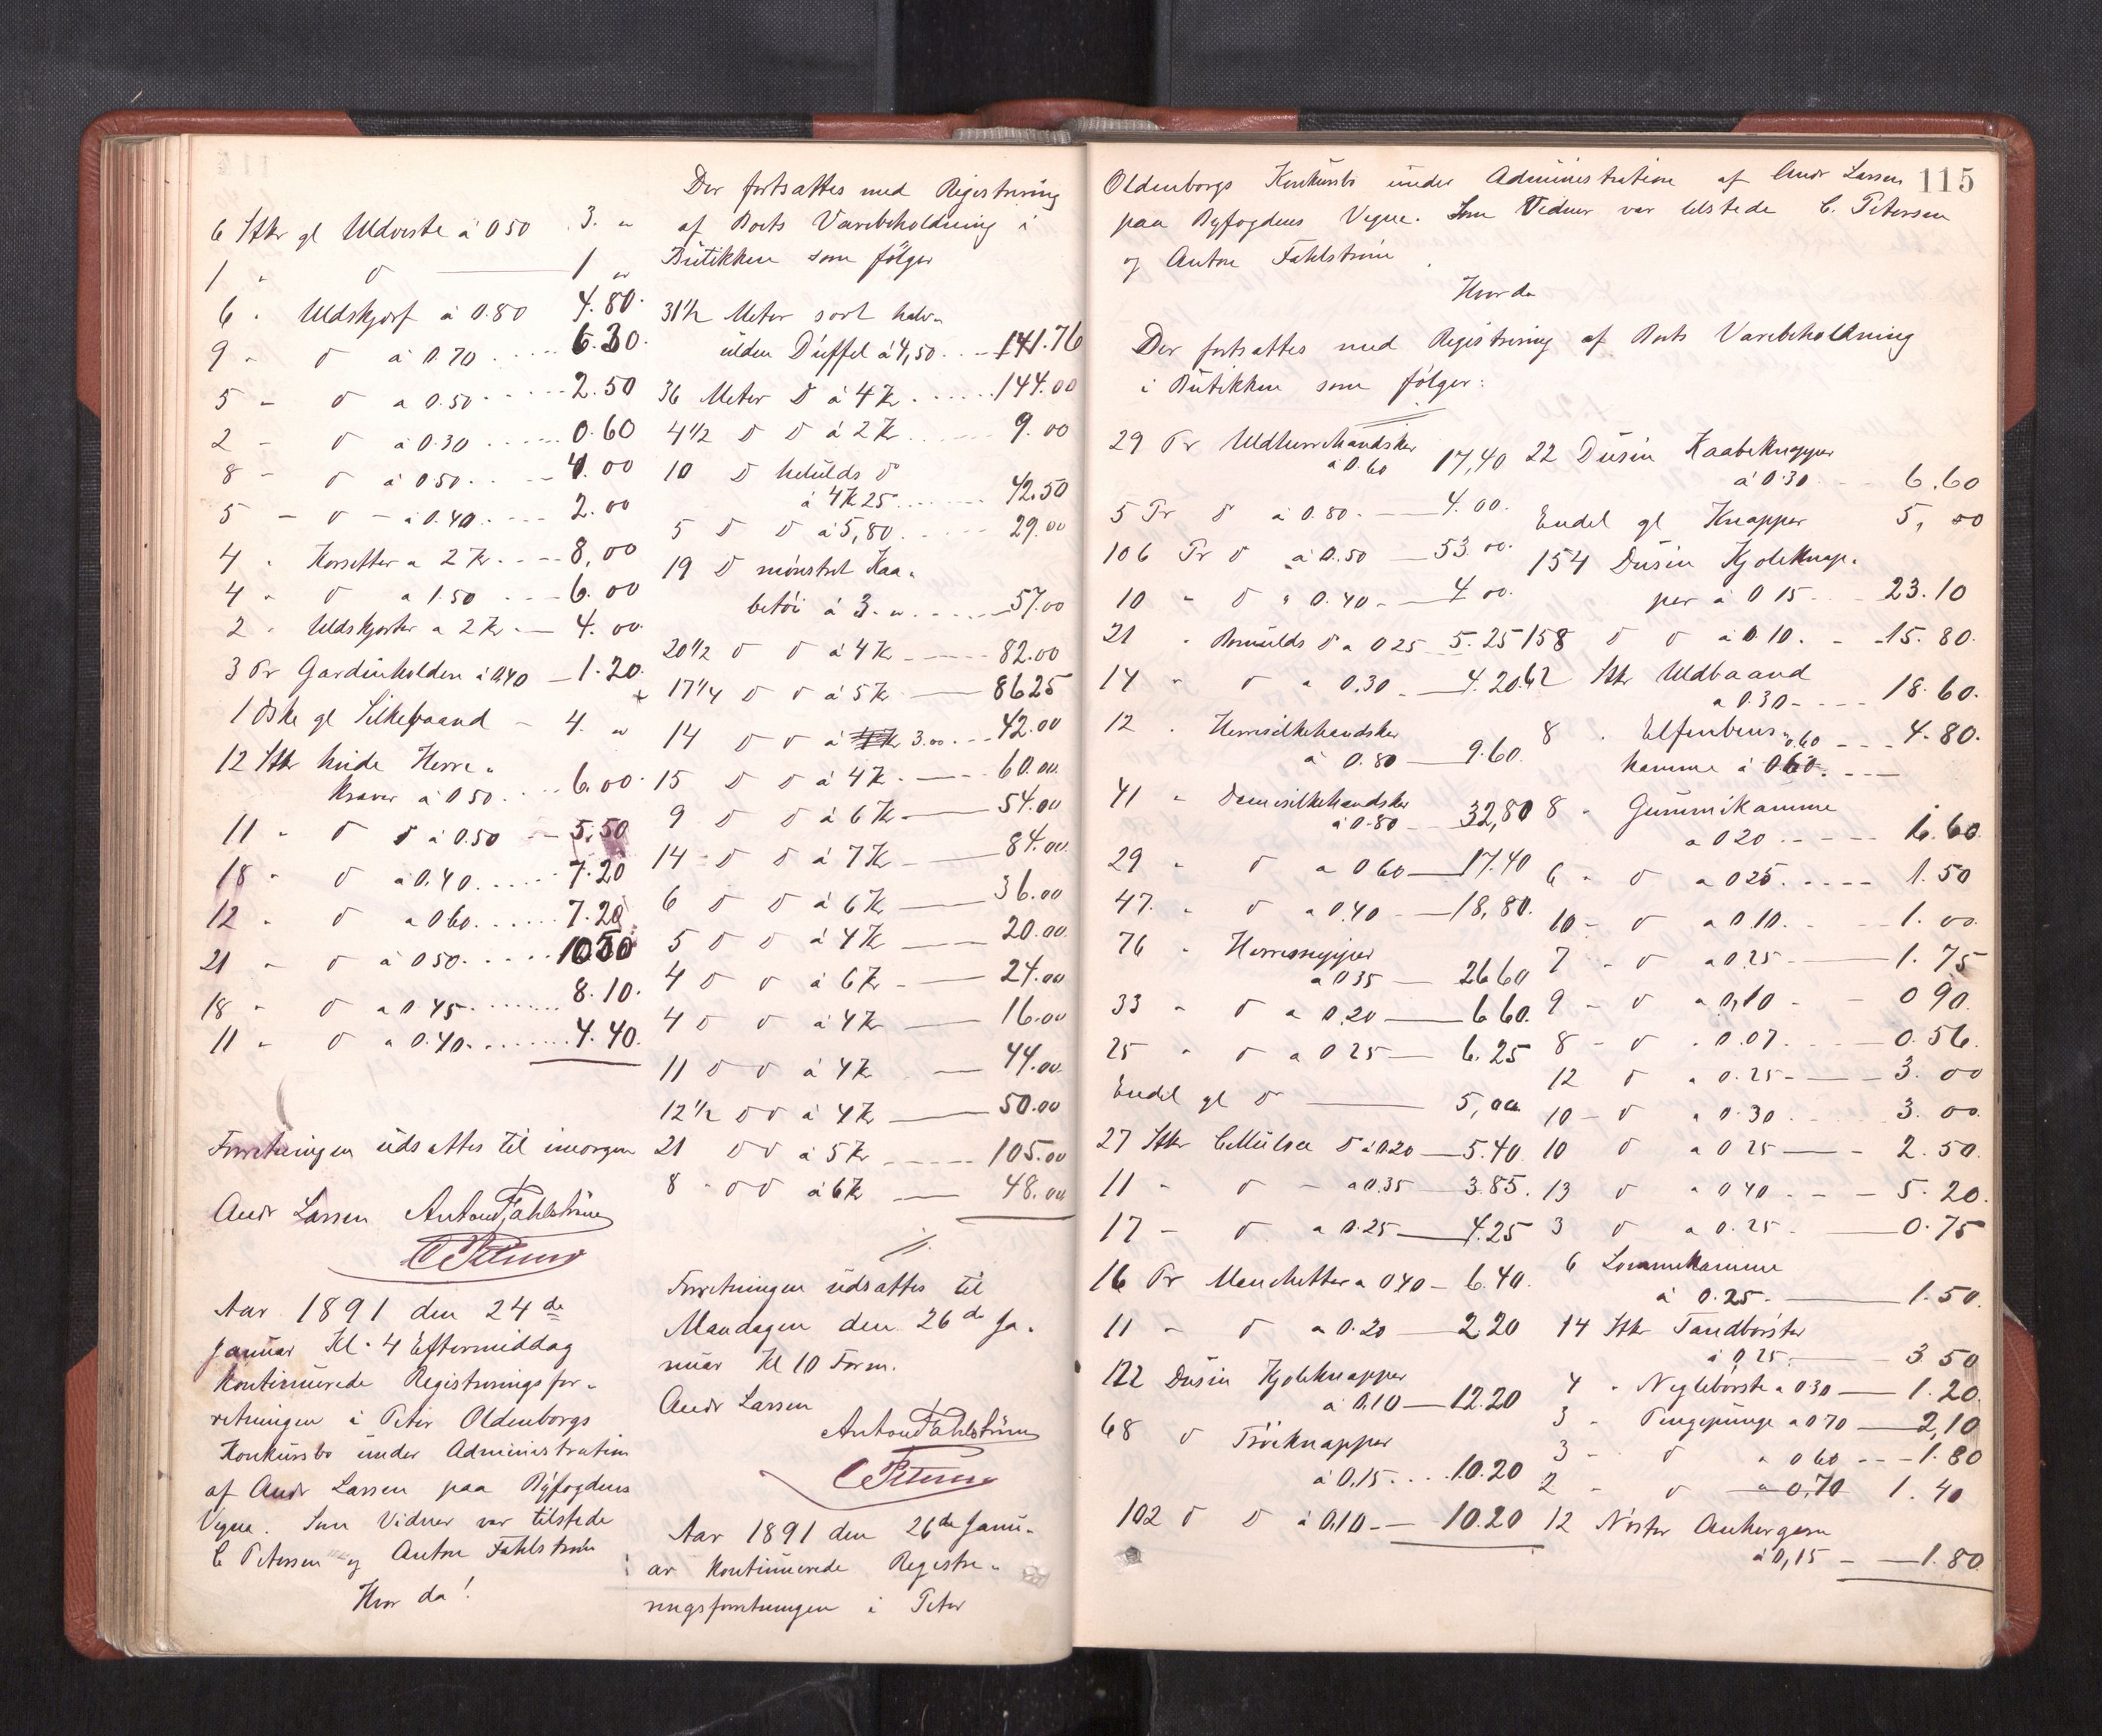 6 Stkr gl Uldveste à 0 50 3. "
1 " D 1 "
6 " Uldskjerf à 0.80 4.80.
9 " D à 0.70 6.30.
5 - D a 0.50 2.50
2 - D à 0.30 0.60
8 - D à 0 50 4.00
5 - D - à 0.40 2.00
4 " Korsetter a 2 Kr 8,00
4 " D a 1.50 6.00
2 " Uldskjorter a 2 Kr 4.00
3 Pr Gardinholdere à 0,40 1.20.
1 Æske gl Silkebaand - 4. "
12 Stkr hvide Herre-
kraver à 0 50 6.00
11 - D D à 0.50 5.50
18 " D à 0.40 7.20
12 " D a 0 60 7.20
21 - D à 0 50 10 50
18 " D a 0 45 8.10.
11 - D a 0.40 4.40.
Forretningen udsattes til imorgen
Andr Larsen Anton Fahlstrøm
C Petersen
Aar 1891 den 24de
Januar Kl. 4 Eftermiddag
kontinuerede Registreringsfor-
retningen i Peter Oldenborgs
Konkursbo under Administration
af Andr Larsen paa Byfogdens
Vegne. Som Vidner var tilstede
C Petersen og Anton Fahlstrøm
Hvor da!
Der fortsattes med Registrering
af Boets Varebeholdning i
Butikken som følger
31 1/2 Meter sort halv-
ulden Duffel à 4,50 141.76
36 Meter D à 4 Kr 144.00
4 1/2 D D à 2 Kr 9.00
10 D heluld D
à 4 Kr 25 42.50
5 D D à 5,80 29.00
19 D mønstret Kaa-
betøi à 3. " 57.00
20 1/2 D D à 4 Kr 82.00
+ 17 1/4 D D à 5 Kr 86 25
14 D D à 3.00 42.00
15 D D à 4 Kr 60.00
9 D D à 6 Kr 54.00
14 D D à 7 Kr 84.00
6 D D à 6 Kr 36.00
5 D D à 4 Kr 20.00
4 D D à 6 Kr 24.00
4 D D à 4 Kr 16.00
11 D D à 4 Kr 44.00
12 1/2 D D à 4 Kr 50.00
21 D D à 5 Kr 105.00
8 - D D à 6 Kr 48.00
Forretningen udsattes til
Mandagen den 26de Ja-
nuar Kl 10 Form.
Andr Larsen
Anton Fahlstrøm
C Petersen
Aar 1891 den 26de Janu-
ar kontinuerede Registre-
ringsforretningen i Peter
115
Oldenborgs Konkursbo under Administration af Andr Larsen
paa Byfogdens Vegne. Som Vidner var tilstede C. Petersen
og Anton Fahlstrøm
Hvor da
Der fortsattes med Registrering af Boets Varebeholdning
i Butikken som følger:
29 Pr Uldherrehandsker
à 0.60 17,40
5 Pr D à 0.80 4.00.
106 Pr D à 0.50 53.00.
10 " D " 0.40 4 00.
21 " Bomulds D a 0 25 5.25
14 " D a 0.30 4.20
12 " Herresilkehandsker
à 0.80 9.60
41 " Damesilkehandsker
à 0.80 32,80
29 " D a 0 60 17.40
47 " D a 0.40 18,80.
76 " Herreslipper
a 0 35 26 60
33 " D a 0.20 6 60.
25 " D a 0 25 6.25
Endel gl D 5,00
27 Stkr Celluloa D à 0.20 5.40.
11 - D - a 0.35 3.85.
17 - D a 0.25 4.25
16 Pr Manchetter a 0 40 6.40.
11 - D a 0.20 2 20
122 Dusin Kjoleknapper
à 0.10 12.20
68 D Trøieknapper
à 0.15 10.20
102 D D à 0,10 10.20
22 Dusin Kaabeknapper
à 0 30 6.60
Endel gl Knapper 5,00
154 Dusin Kjoleknap-
per à 0 15 23.10
158 D D à 0.10. 15.80.
62 Stkr Uldbaand
a 0.30 18.60.
8 " Elfenbens- 0.60 4.80.
kamme à 0 60.
8 " Gummikamme
a 0 20 1.60
6 " D a 0 25 1.50
10 - D a 0 10. 1.00.
7 - D a 0.25 1.75
9 - D a 0,10 0 90.
8 - D " 0.07. 0.56.
12 D a 0.25 3.00
10 - D a 0.30 3.00.
10 D a 0 25 2.50.
13 D a 0 40 5.20.
3 D a 0.25 0.75
6 Lommekamme
à 0.25. 1.50.
14 Stkr Tandbørster
à 0,25. 3 50
4 " Neglebørste a 0 30 1.20.
3 - Pengepunge a 0 70 2,10
3 - D a 0 60 1.80
2 - D a 0,70 1.40
12 Nøster Ankergarn
à 0,15 1.80